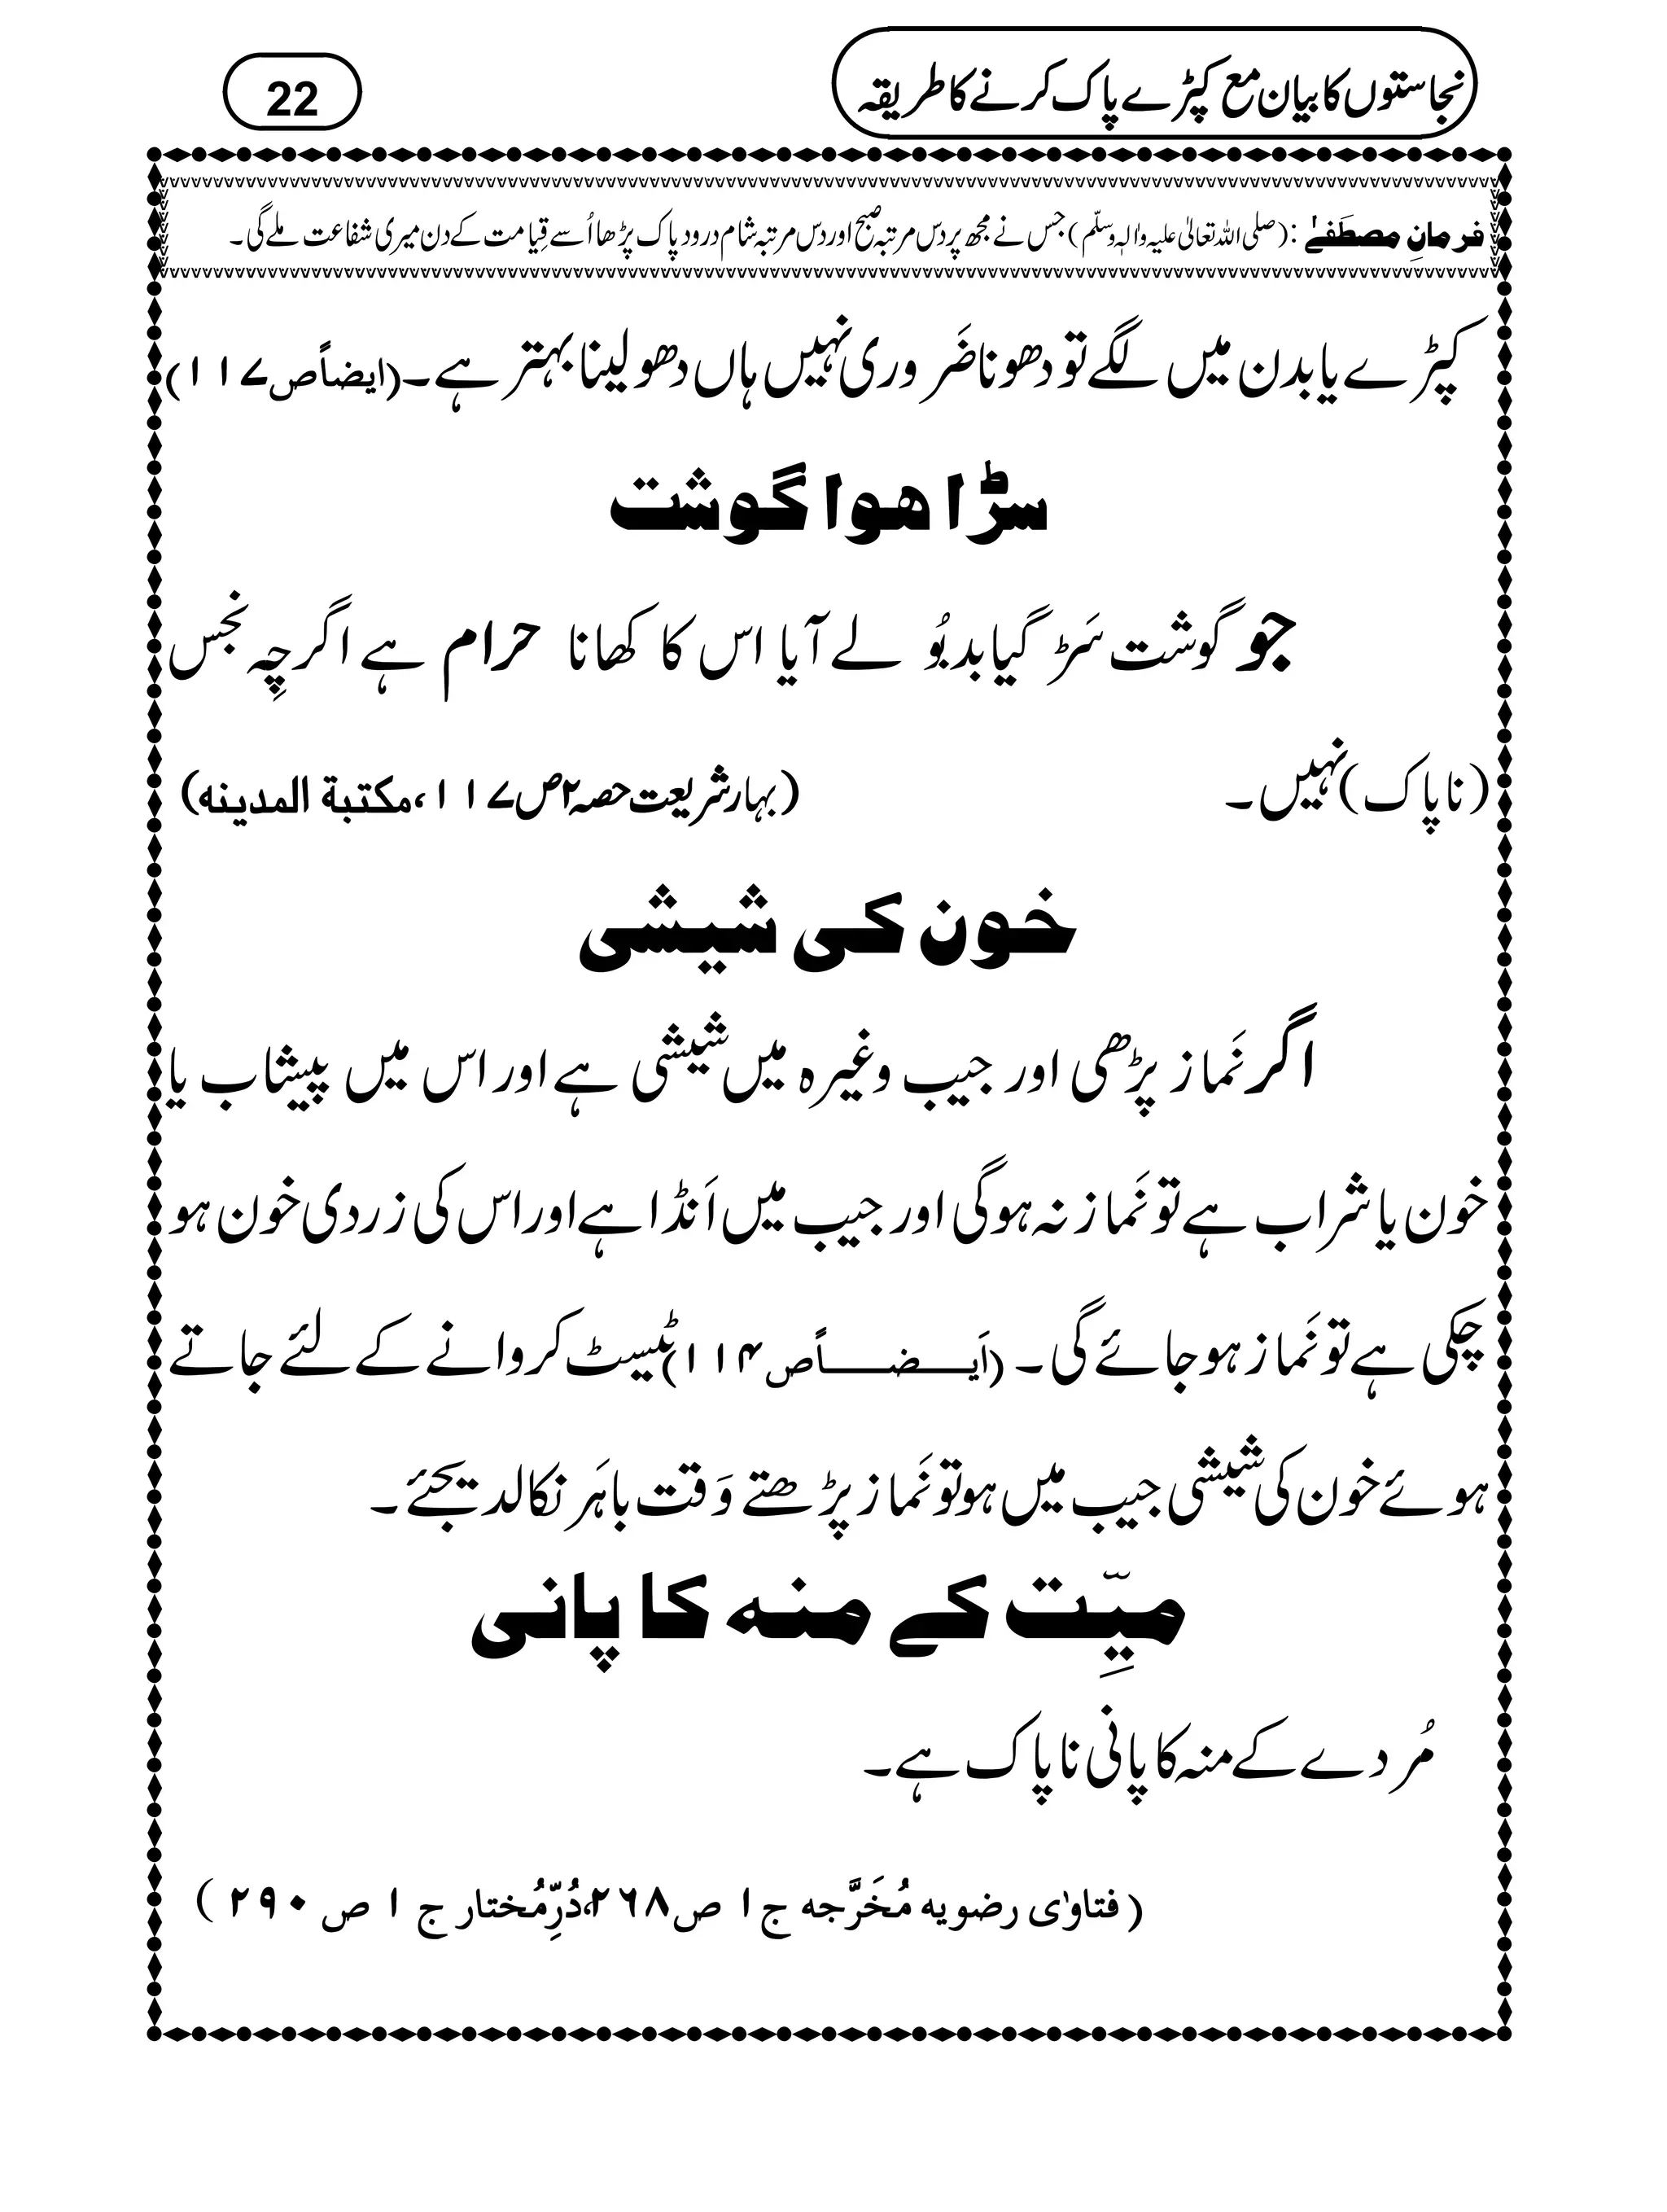 نجاستوں کا بیان مع کپڑے پاک کرنے کا طریقہ
22
فرمانِ مصطَفےٰ : (صلی اللہ تعالیٰ علیہ واٰلہٖ وسلّم) جس نے مجھ پر دس مرتبہ صبح اور دس مرتبہ شام درود پاک پڑھا اُسے قِیامت کے دن میری شفاعت ملے گی۔
کپڑے یا بدن میں لگے تو دھونا ضَروری نہیں ہاں دھو لینا بہتر ہے۔ (ایضاً ص۱۱۷)
سڑا ھوا گوشت
جو گوشت سَڑ گیا بدبُو لے آیا اس کا کھانا حرام ہے اگرچِہ نجس
(ناپاک) نہیں۔ (بہار شریعت حصہ ۲ ص۱۱۷، مکتبة المدینه)
خون کی شیشی
اگر نَماز پڑھی اور جیب وغیرہ میں شیشی ہے اور اس میں پیشاب یا
خون یا شراب ہے تو نَماز نہ ہوگی اور جیب میں اَنڈا ہے اور اس کی زردی خون ہو
چکی ہے تو نَماز ہو جائے گی۔ (اَیضاً ص۱۱۴) ٹیسٹ کروانے کے لئے جاتے
ہوئے خون کی شیشی جیب میں ہو تو نَماز پڑھتے وَقت باہَر نکالد یجئے۔
میِّت کے منہ کا پانی
مُردے کے منہ کا پانی ناپاک ہے۔
( فتاوٰی رضویه مُخَرَّجه ج ۱ ص۲۶۸، دُرِّمُختار ج ۱ ص ۲۹۰ )